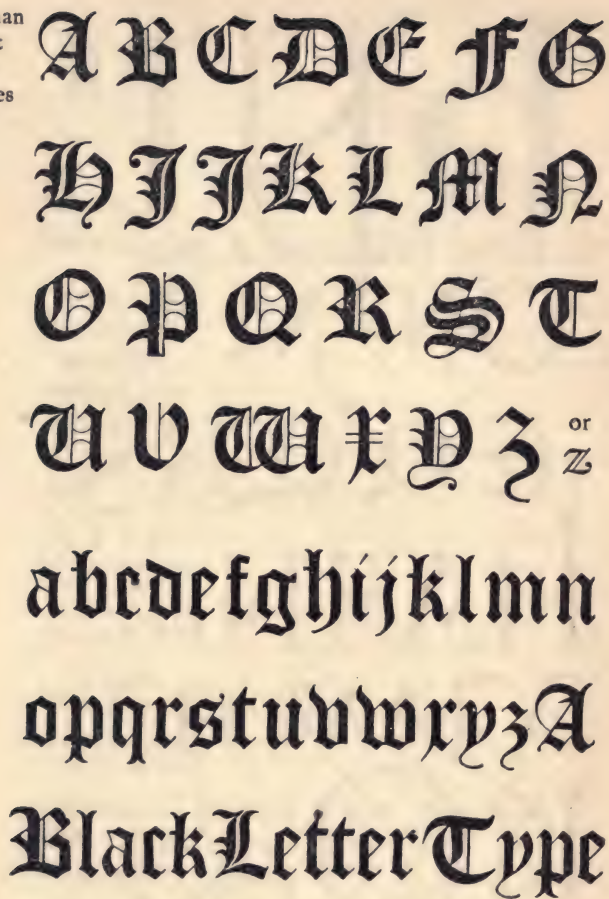 A B C D E F G
H I J K L M N
O P Q R S T
U V W X Y Z or Z
abcdefghijklmn
opqrstuvwxyzA
Black Letter Type